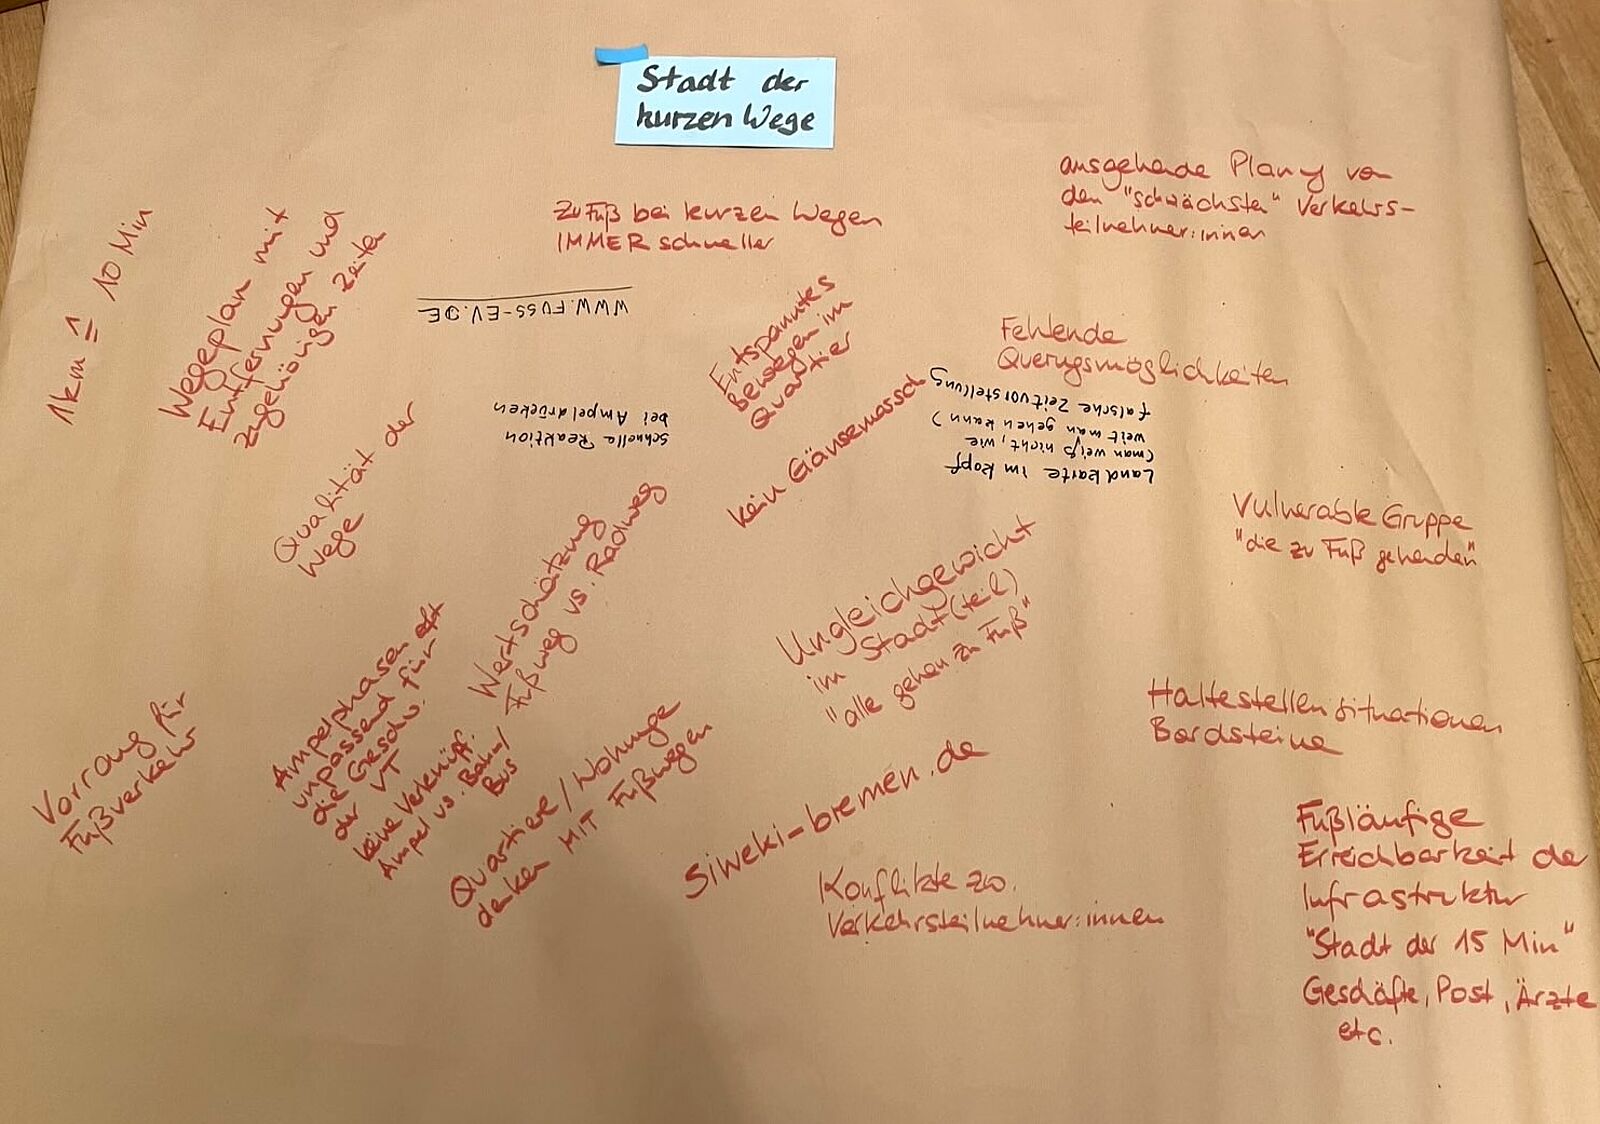 Stadt der
kurzen Wege
1km ≙ 10 Min
Wegeplan mit
Entfernungen und
zugehörigen Zeiten
Zu Fuß bei kurzen Wegen
IMMER schneller
ausgehende Planung von
den "schwächsten" Verkehrs-
teilnehmer:innen
WWW.FUSS-EV.DE
Entspanntes
bewegen im
Quartier
Fehlende
Querungsmöglichkeiten
schnelle Reaktion
bei Ampeldrücken
kein Gänsemarsch
Landkarte im Kopf
(man weiß nicht, wie
weit man gehen kann)
falsche Zeitvorstellung
Qualität der
Wege
Vulnerable Gruppe
"die zu Fuß gehenden"
Wertschätzung
Fußweg vs. Radweg
Ungleichgewicht
im Stadt(teil)
"alle gehen zu Fuß"
Vorrang für
Fußverkehr
Ampelphasen oft
unpassend für
die Geschw.
der VT
keine Verknüpf.
Ampel vs. Bahn/
Bus
Quartiere/Wohnunge
denken MIT Fußwegen
Haltestellensituationen
Bordsteine
Siweki-bremen.de
Konflikte zw.
Verkehrsteilnehmer:innen
Fußläufige
Erreichbarkeit de
Infrastruktur
"Stadt der 15 Min"
Geschäfte, Post, Ärzte
etc.